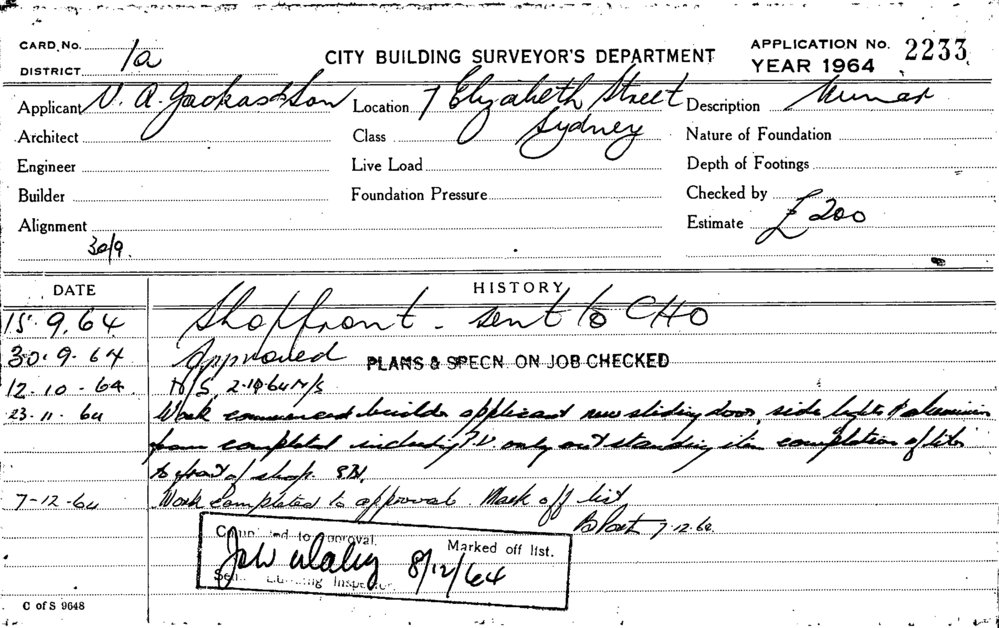 CARD. No. 1a
DISTRICT
CITY BUILDING SURVEYOR'S DEPARTMENT
APPLICATION No. 2233
YEAR 1964
Applicant V. A. & Son
Location 7 Elizabeth Street
Sydney
Description
Architect
Class
Nature of Foundation
Engineer
Live Load
Depth of Footings
Builder
Foundation Pressure
Checked by
Alignment
Estimate £200
30/9.
DATE
HISTORY
15.9.64 Shopfront - sent to CHO
30.9.64 Approved PLANS & SPECN. ON JOB CHECKED
12.10.64 N/S, N/S
23.11.64 Work commenced builder applicant new sliding door, side lights & aluminium
completed including only outstanding item completion of tiles
to front of shop.
7-12-64 Work completed to approval. Mark off list
7.12.64
Completed to approval.
Marked off list.
8/12/64
Building Inspector
C of S 9648